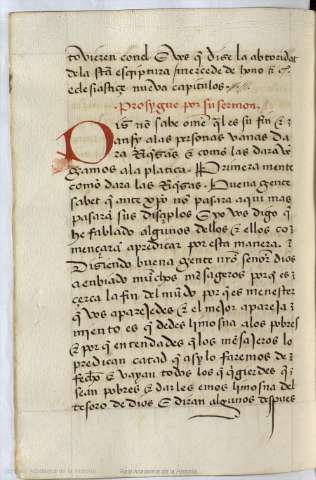 to vieren concl. E vos q̃ dise la abtoridat
dela stã escriptura / mercede de hono
eclesiastiçe nueve capitulos.
Prosygue por su sermon.
Dis nõ sabe ome q̃l es su fin &
ansy alas personas vanas da
ra Riq̃sas & como las dara v
gamos ala platica. Primera mente
como dara las Riq̃sas. Buena gente
sabet q̃ ante xp̃o nõ pasara aqui mas
pasarã sus disçiplos E yo vos digo q̃
he fablado algunos dellos & ellos co
mençarã apredicar por esta manera.
Disiendo buena gente nrõ señor dios
a enbiado muchos mesageros por q̃ es
çerca la fin del mũdo por q̃ es menester
q̃ vos aparejedes & el mejor apareja
miento es q̃ dedes limosna alos pobres
& por q̃ entendades q̃ los mẽsajeros lo
predican catad q̃ asy lo faremos de
fecho & vayan todos los q̃ q̃sierdes q̃
sean pobres & darles emos limosna del
tesoro de dios E diran algunos despues
Real Academia de la Historia